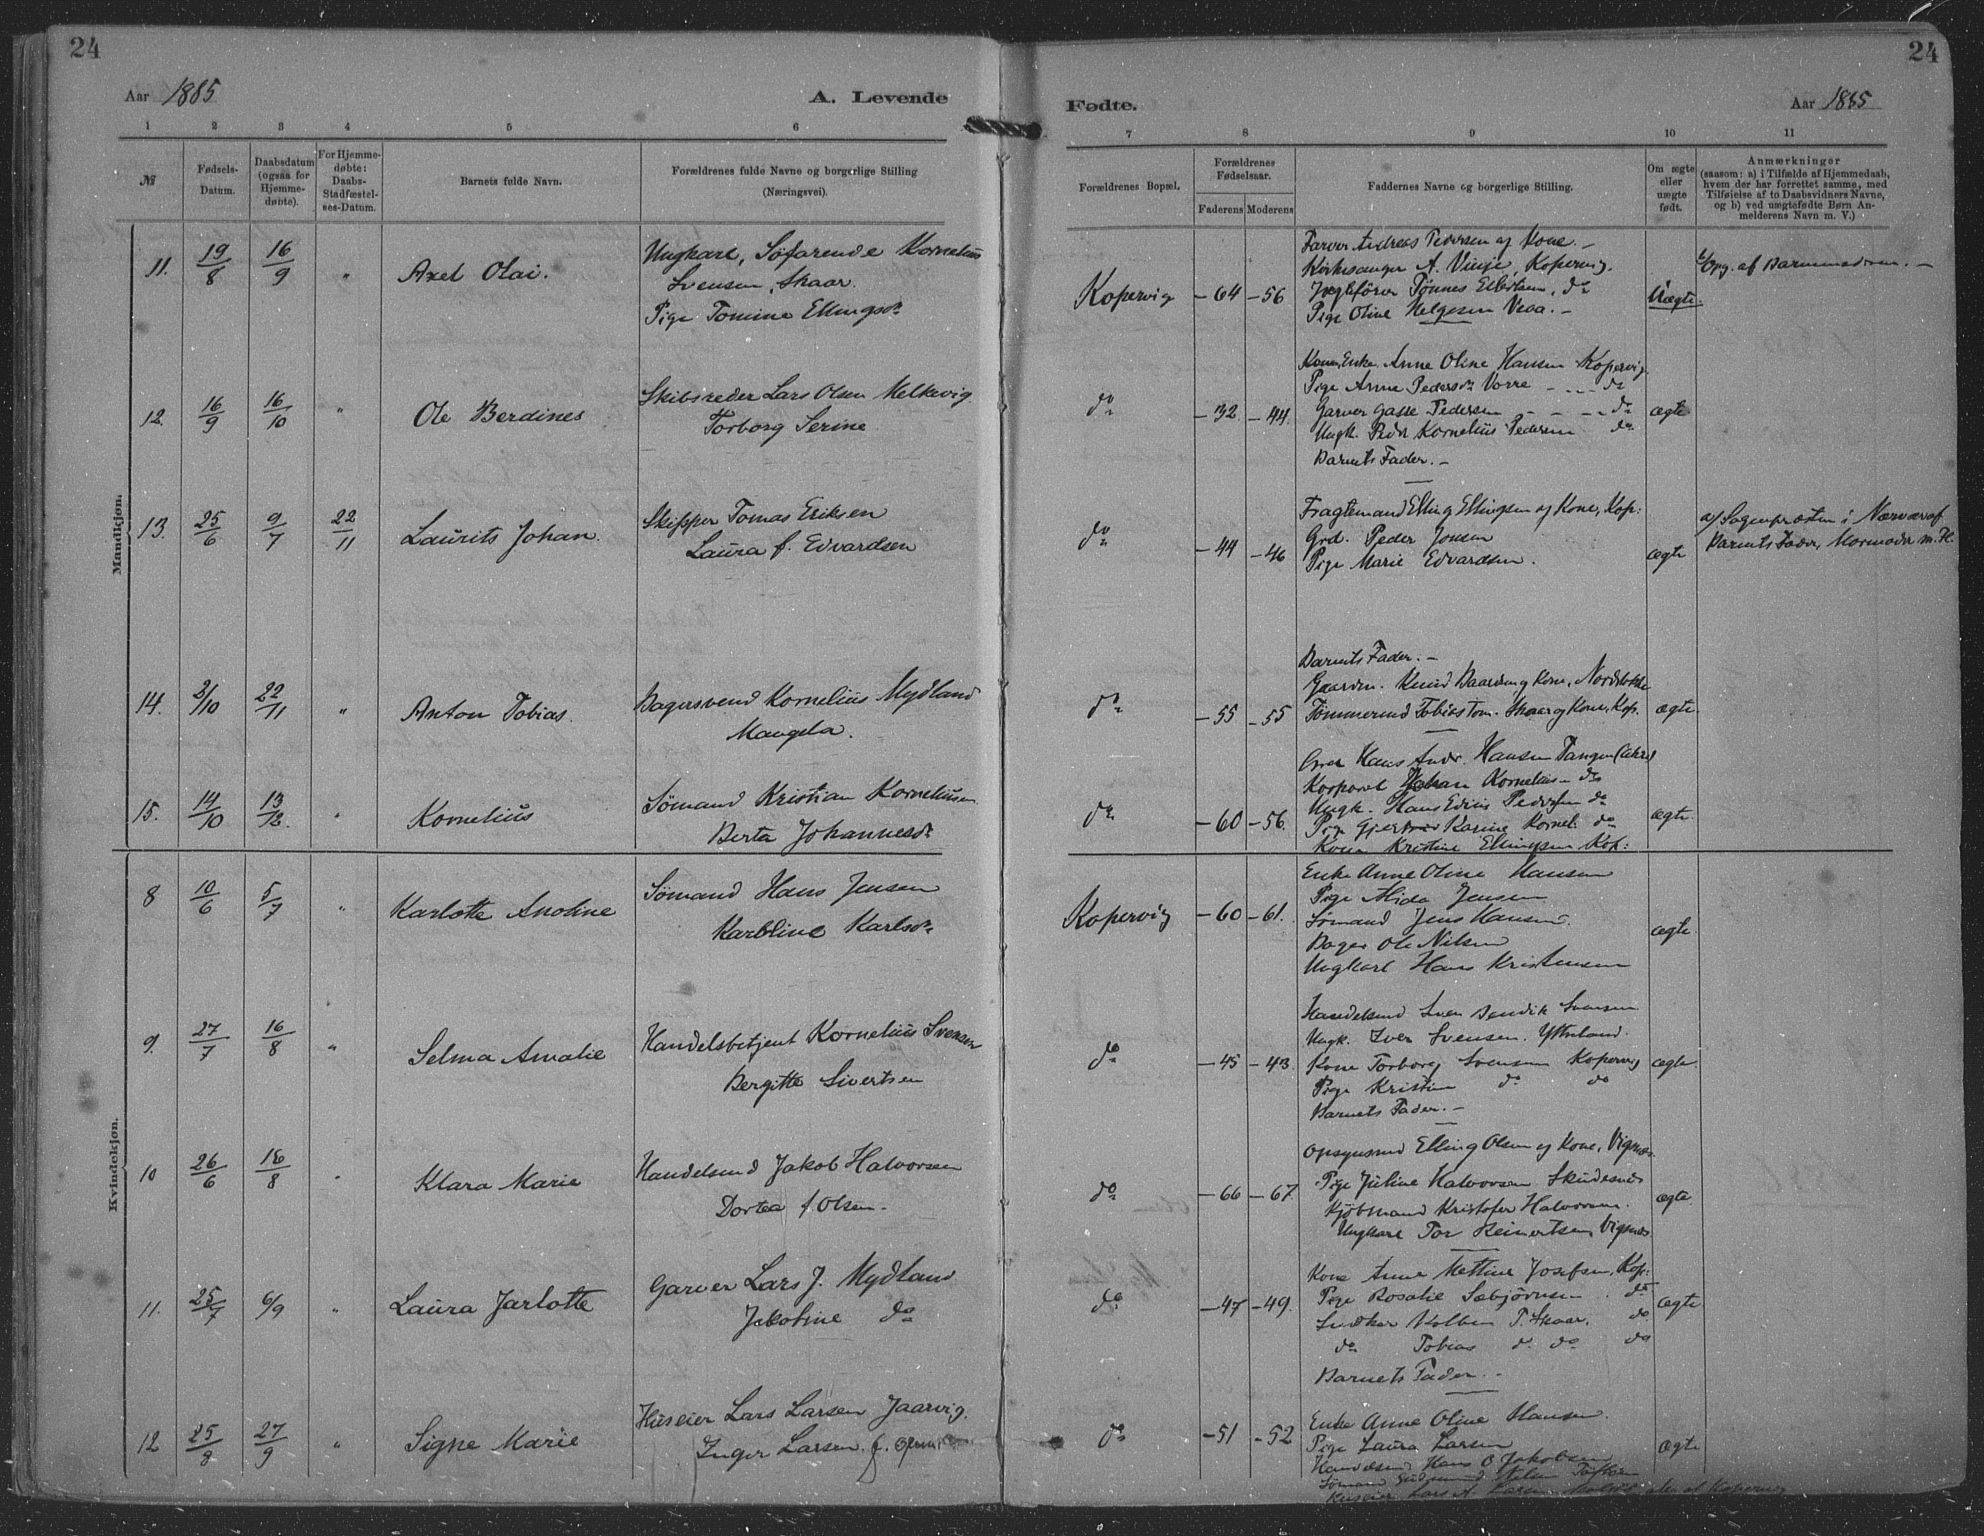 24
24
Aar 1885
A. Levende
Fødte.
Aar 1885
1 2 3 4 5 6 7 8 9 10 11
№
Fødsels-
Datum.
Daabsdatum
(ogsaa for
Hjemme-
døbte).
For Hjemme-
døbte:
Daabs-
Stadfæstel-
ses-Datum.
Barnets fulde Navn.
Forældrenes fulde Navne og borgerlige Stilling
(Næringsvei).
Forældrenes Bopæl.
Forældrenes
Fødselsaar.
Faderens Moderens
Faddernes Navne og borgerlige Stilling.
Om ægte
eller
uægte
født.
Anmærkninger
(saasom: a) i Tilfælde af Hjemmedaab,
hvem der har forrettet samme, med
Tilføielse af to Daabsvidners Navne,
og b) ved uægtefødte Børn An-
melderens Navn m. V.)
Mandkjøn.
11. 19/8 16/9 " Axel Olai.
Ungkarl, Søfarende Kornelius
Svensen, Skaar.
Pige Tomine Ellingsdr
Kopervig -64 -56
Farver Andreas Pedersen og Kone. -
Kirkesanger A. Vinje, Kopervig.
Tønnes do
Pige Oline Helgesen Veaa. -
Uægte.
b/ Opg. af Barnemoderen. -
12. 16/9 16/10 " Ole Berdines
Skibsreder Lars Olsen Melkevig
Torborg Serine
do -32 -44.
Enke Anne Oline Hansen Kopervig
Pige Anne Pedersdr Vorre - - do
Garver Gasse Pedersen - - - do
Ungk. Peder Kornelius Pedersen do
Barnets Fader. -
ægte
13. 25/6 9/7 22/11 Laurits Johan.
Skipper Tomas Eriksen
Laura f. Edvardsen
do -44 -46
Fragtemand Elling Ellingsen og Kone, Kop:
Grd. Peder Jonsen
Pige Marie Edvardsen.
ægte
a/ Sognepræsten i Nærvær af
Barnets Fader, Mormoder m. fl.
14. 2/10 22/11 " Anton Tobias.
Bagersvend Kornelius Mydland
Mangela.
do -55 -55
Barnets Fader. -
Gaardm. Knud Baardsen og Kone, Nordstokke
Tømmermd Tobias Tom. Skaar og Kone, Kop.
ægte
15. 14/10 13/12. " Kornelius
Sømand Kristian Kornelius
Berta Johannesdr
do -60 -56.
Hans Andr. Hansen Tangen
Korporal Johan Kornelius - do
Ungk. Hans Edius Pedersen do
Pige Gjertrud Karine Kornel. do
Kone Kristine Ellingsen Kop:
ægte.
Kvindekjøn.
8 10/6 5/7 " Karlotte Anoline
Sømand Hans Jensen
Karoline Karlsdr
Kopervig -60 -61.
Enke Anne Oline Hansen
Pige Alida Jensen
Sømand Jens Hansen
Bager Ole Nilsen
Ungkarl Hans Kristensen
ægte.
9. 27/7 16/8 " Selma Amalie
Handelsbetjent Kornelius Svensen
Bergitte Sivertsen
do -45 -43.
Handelsmd Sven Bendik Svensen
Ungk. Iver Svensen. Ytreland.
Kone Torborg Svensen Kopervig
Pige Kristine do do
Barnets Fader. -
ægte.
10 26/6 16/8 " Klara Marie
Handelsmd Jakob Halvorsen
Dortea f. Olsen.
do -66 -67.
Opsynsmd Elling Olsen og Kone, Vigsnæs
Pige Juline Halvorsen Skudesnæs
Kjøbmand Kristofer Halvorsen.
Ungkarl Tor Reinertsen, Vigsnæs
ægte.
11. 25/7 6/9 " Laura Jarlotte
Garver Lars J. Mydland
Jakobine do
do -47 -49.
Kone Anne Mettine Josefsen, Kop:
Pige Rosalie Sæbjørnsen . do
Kolben T. Skaar. do
do Tobias d. do do
Barnets Fader. -
ægte
12 25/8 27/9 " Signe Marie
Huseier Lars Larsen Jaarvig.
Inger Larsen f. Olsen
do -51 -52
Enke Anne Oline Hansen.
Pige Laura Larsen
Handelsmd Hans O Jakobsen
Sømand Gudmund Nilsen
Huseier Lars A. Larsen
ægte